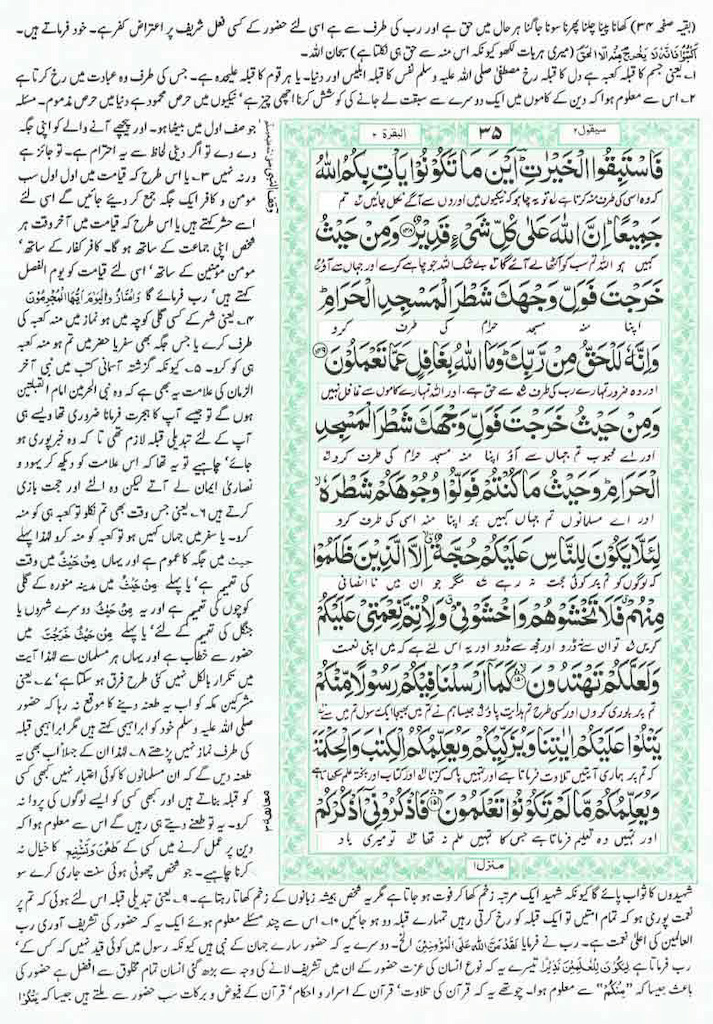 (بقیہ صفحہ ۳۴) کھانا پینا چلنا پھرنا سونا جاگنا ہر حال میں حق ہے اور رب کی طرف سے ہے اسی لئے حضور کے کسی فعل شریف پر اعتراض کفر ہے۔ خود فرماتے ہیں۔
(میری ہر بات لکھو کیونکہ اس منہ سے حق ہی نکلتا ہے) سبحان اللہ۔
۱۔ یعنی جسم کا قبلہ کعبہ ہے دل کا قبلہ رخ مصطفیٰ صلی اللہ علیہ وسلم نفس کا قبلہ ابلیس اور دنیا۔ یا ہر قوم کا قبلہ علیحدہ ہے۔ جس کی طرف وہ عبادت میں رخ کرتا ہے
۲۔ اس سے معلوم ہوا کہ دین کے کاموں میں ایک دوسرے سے سبقت لے جانے کی کوشش کرنا اچھی چیز ہے' نیکیوں میں حرص محمود ہے دنیا میں حرص مذموم۔ مسئلہ
سیقول ۲
۳۵
البقرة ۲
فَاسْتَبِقُوا الْخَيْرٰتِ ؕ اَيْنَ مَا تَكُوْنُوْا يَاْتِ بِكُمُ اللّٰهُ
کہ وہ اسی کی طرف منہ کرتا ہے تو یہ چاہو کہ نیکیوں میں اوروں سے آگے نکل جائیں تم
جَمِيْعًا ؕ اِنَّ اللّٰهَ عَلٰى كُلِّ شَيْءٍ قَدِيْرٌ ۝۱۴۸ وَمِنْ حَيْثُ
کہیں ہو اللہ تم سب کو اکٹھا لے آئے گا بے شک اللہ جو چاہے کرے اور جہاں سے آؤ
خَرَجْتَ فَوَلِّ وَجْهَكَ شَطْرَ الْمَسْجِدِ الْحَرَامِ ؕ
اپنا منہ مسجد حرام کی طرف کرو
وَاِنَّهٗ لَلْحَقُّ مِنْ رَّبِّكَ ؕ وَمَا اللّٰهُ بِغَافِلٍ عَمَّا تَعْمَلُوْنَ ۝۱۴۹
اور وہ ضرور تمہارے رب کی طرف سے حق ہے۔ اور اللہ تمہارے کاموں سے غافل نہیں
وَمِنْ حَيْثُ خَرَجْتَ فَوَلِّ وَجْهَكَ شَطْرَ الْمَسْجِدِ
اور اے محبوب تم جہاں سے آؤ اپنا منہ مسجد حرام کی طرف کرو
الْحَرَامِ ؕ وَحَيْثُ مَا كُنْتُمْ فَوَلُّوْا وُجُوْهَكُمْ شَطْرَهٗ ۙ
اور اے مسلمانوں تم جہاں کہیں ہو اپنا منہ اسی کی طرف کرو
لِئَلَّا يَكُوْنَ لِلنَّاسِ عَلَيْكُمْ حُجَّةٌ ۙ اِلَّا الَّذِيْنَ ظَلَمُوْا
کہ لوگوں کو تم پر کوئی حجت نہ رہے مگر جو ان میں ناانصافی
مِنْهُمْ ۗ فَلَا تَخْشَوْهُمْ وَاخْشَوْنِيْ ۗ وَلِاُتِمَّ نِعْمَتِيْ عَلَيْكُمْ
کریں تو ان سے نہ ڈرو اور مجھ سے ڈرو اور یہ اس لئے ہے کہ میں اپنی نعمت
وَلَعَلَّكُمْ تَهْتَدُوْنَ ۝۱۵۰ كَمَآ اَرْسَلْنَا فِيْكُمْ رَسُوْلًا مِّنْكُمْ
تم پر پوری کروں اور کسی طرح تم ہدایت پاؤ جیسا ہم نے تم میں بھیجا ایک رسول تم میں سے
يَتْلُوْا عَلَيْكُمْ اٰيٰتِنَا وَيُزَكِّيْكُمْ وَيُعَلِّمُكُمُ الْكِتٰبَ وَالْحِكْمَةَ
کہ تم پر ہماری آیتیں تلاوت فرماتا ہے اور تمہیں پاک کرتا اور کتاب اور پختہ علم سکھاتا ہے
وَيُعَلِّمُكُمْ مَّا لَمْ تَكُوْنُوْا تَعْلَمُوْنَ ۝۱۵۱ فَاذْكُرُوْنِيْٓ اَذْكُرْكُمْ
اور تمہیں وہ تعلیم فرماتا ہے جس کا تمہیں علم نہ تھا تو میری یاد
منزل ۱
جو صف اول میں بیٹھا ہو۔ اور پیچھے آنے والے کو اپنی جگہ
دے دے تو اگر دینی لحاظ سے یہ احترام ہے۔ تو جائز ہے
ورنہ نہیں ۳۔ یا اس طرح کہ قیامت میں اول اول سب
مومن و کافر ایک جگہ جمع کر دیئے جائیں گے اسی لئے
اسے حشر کہتے ہیں یا اس طرح کہ قیامت میں آخر وقت ہر
شخص اپنی جماعت کے ساتھ ہو گا۔ کافر کفار کے ساتھ'
مومن مومنین کے ساتھ' اسی لئے قیامت کو یوم الفصل
کہتے ہیں' رب فرمائے گا وَامْتَازُوا الْيَوْمَ اَيُّهَا الْمُجْرِمُوْنَ
۴۔ یعنی شہر کے کسی گلی کوچہ میں ہو نماز میں منہ کعبہ کی
طرف کرے یا جس جگہ بھی سفر یا حضر میں تم ہو منہ کعبہ
ہی کو کرو۔ ۵۔ کیونکہ گزشتہ آسمانی کتب میں نبی آخر
الزمان کی علامت یہ بھی ہے کہ وہ نبی الحرمین امام القبلتین
ہوں گے تو جیسے آپ کا ہجرت فرمانا ضروری تھا ویسے ہی
آپ کے لئے تبدیلی قبلہ لازم تھی تا کہ وہ خبر پوری ہو
جائے' چاہیے تو یہ تھا کہ اس علامت کو دیکھ کر یہود و
نصاریٰ ایمان لے آتے لیکن وہ الٹے اور حجت بازی
کرتے ہیں ۶۔ یعنی جس وقت بھی تم نکلو تو کعبہ ہی کو منہ
کرو۔ یا سفر میں جہاں کہیں ہو تو کعبہ کو منہ کرو لہٰذا پہلے
حیث میں جگہ کا عموم ہے اور یہاں مِنْ حَيْثُ میں وقت
کی تعمیم ہے' یا پہلے مِنْ حَيْثُ میں مدینہ منورہ کے گلی
کوچوں کی تعمیم ہے اور یہ مِنْ حَيْثُ دوسرے شہروں یا
جنگل کی تعمیم کے لئے' یا پہلے مِنْ حَيْثُ خَرَجْتَ میں
حضور سے خطاب ہے اور یہاں ہر مسلمان سے لہٰذا آیت
میں تکرار بالکل نہیں کئی طرح فرق ہو سکتا ہے' ۷۔ یعنی
مشرکین مکہ کو اب یہ طعنہ دینے کا موقع نہ رہا کہ حضور
صلی اللہ علیہ وسلم خود کو ابراہیمی کہتے ہیں مگر ابراہیمی قبلہ
کی طرف نماز نہیں پڑھتے ۸۔ لہٰذا ان کے جہلاء اب بھی یہ
طعنہ دیں گے کہ ان مسلمانوں کا کوئی اعتبار نہیں کبھی کسی
کو قبلہ بناتے ہیں اور کبھی کسی کو ایسے لوگوں کی پروا نہ
کرو۔ یہ تو طعنے دیتے ہی رہیں گے اس سے معلوم ہوا کہ
دین پر عمل کرنے میں کسی کے طعن و تشنیع کا خیال نہ
کرنا چاہیے۔ جو شخص چھوٹی ہوئی سنت جاری کرے سو
شہیدوں کا ثواب پائے گا کیونکہ شہید ایک مرتبہ زخم کھا کر فوت ہو جاتا ہے مگر یہ شخص ہمیشہ زبانوں کے زخم کھاتا رہتا ہے۔ ۹۔ یعنی تبدیلی قبلہ اس لئے ہوئی کہ تم پر
نعمت پوری ہو کہ تمام امتیں تو ایک قبلہ کو رخ کرتی رہیں تمہارے قبلہ دو ہو جائیں ۱۰۔ اس سے چند مسئلے معلوم ہوئے ایک یہ کہ حضور کی تشریف آوری رب
العالمین کی اعلیٰ نعمت ہے۔ رب نے فرمایا لَقَدْ مَنَّ اللّٰهُ عَلَى الْمُؤْمِنِيْنَ الخ۔ دوسرے یہ کہ حضور سارے جہان کے نبی ہیں کیونکہ رسول میں کوئی قید نہیں کہ کس کے'
رب فرماتا ہے لِيَكُوْنَ لِلْعٰلَمِيْنَ نَذِيْرًا تیسرے یہ کہ نوع انسان کی عزت حضور کے ان میں تشریف لانے کی وجہ سے بڑھ گئی انسان تمام مخلوق سے افضل ہے حضور کی
باعث جیسا کہ "مِنْكُمْ" سے معلوم ہوا۔ چوتھے یہ کہ قرآن کی تلاوت' قرآن کے اسرار و احکام' قرآن کے فیوض و برکات سب حضور سے ملتے ہیں جیسا کہ يَتْلُوْا